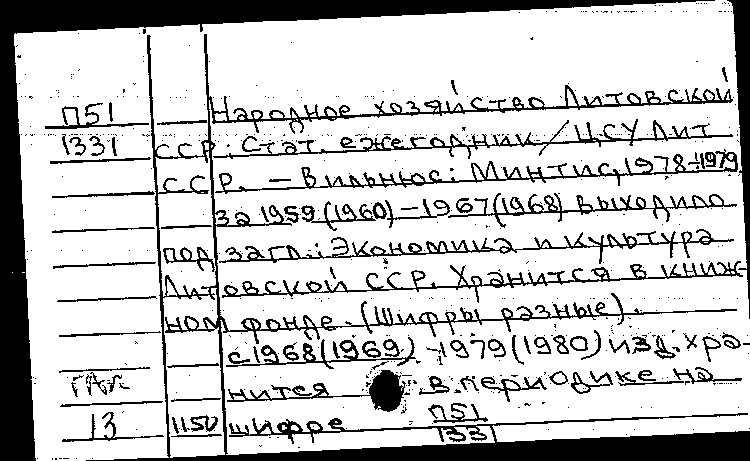 П51 Народное хозяйство Литовской
1331 ССР: Стат. ежегодник / ЦСУ Лит
ССР. – Вильнюс: Минтис, 1978-1979
За 1959 (1960) – 1967 (1968) выходило
под загл.: Экономика и культура
Литовской ССР. Хранится в книж-
ном фонде. (Шифры разные).
с 1968 (1969) – 1979 (1980) изд. хра-
нится в периодике на
13 1150 шифре П51
1331